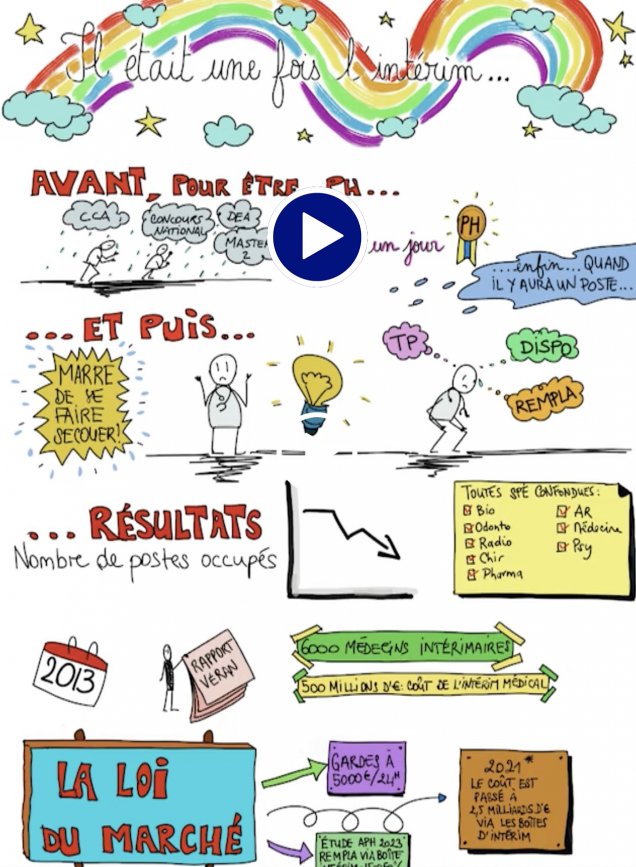 Il était une fois l'intérim...
AVANT, POUR ÊTRE PH...
CCA
CONCOURS
NATIONAL
DEA
MASTER
2
un jour
PH
...enfin... QUAND
IL Y AURA UN POSTE...
...ET PUIS...
MARRE
DE SE
FAIRE
SECOUER!
TP
DISPO
REMPLA
...RÉSULTATS
Nombre de postes occupés
TOUTES SPÉ CONFONDUES:
Bio
Odonto
Radio
Chir
Pharma
AR
Médecine
Psy
2013
RAPPORT
VÉRAN
6000 MÉDECINS INTÉRIMAIRES
500 MILLIONS D'€: COÛT DE L'INTÉRIM MÉDICAL
LA LOI
DU MARCHÉ
GARDES À
5000€/24H
ÉTUDE APH 2023
REMPLA VIA BOÎTE
2021*
LE COÛT EST
PASSÉ À
2,5 MILLIARDS D'€
VIA LES BOÎTES
D'INTÉRIM